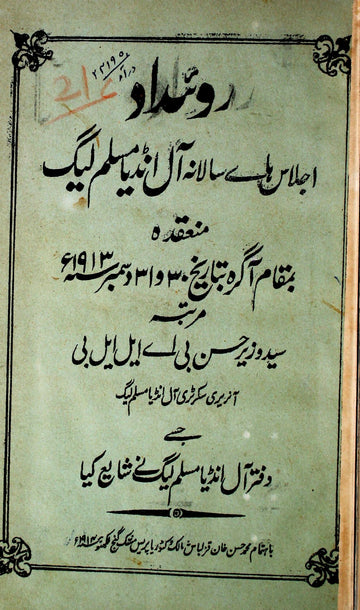 ۲۳۱۹۵
روئداد
اجلاس ہاے سالانہ آل انڈیا مسلم لیگ
منعقدہ
بمقام آگرہ بتاریخ ۳۰ و ۳۱ دسمبر سنہ ۱۹۱۳ء
مرتبہ
سید وزیر حسن بی اے ایل ایل بی
آنریری سکرٹری آل انڈیا مسلم لیگ
جسے
دفتر آل انڈیا مسلم لیگ نے شایع کیا
باہتمام محمد حسن خان قزلباش مالک وکٹوریا پریس گنج لکھنؤ ۱۹۱۴ء